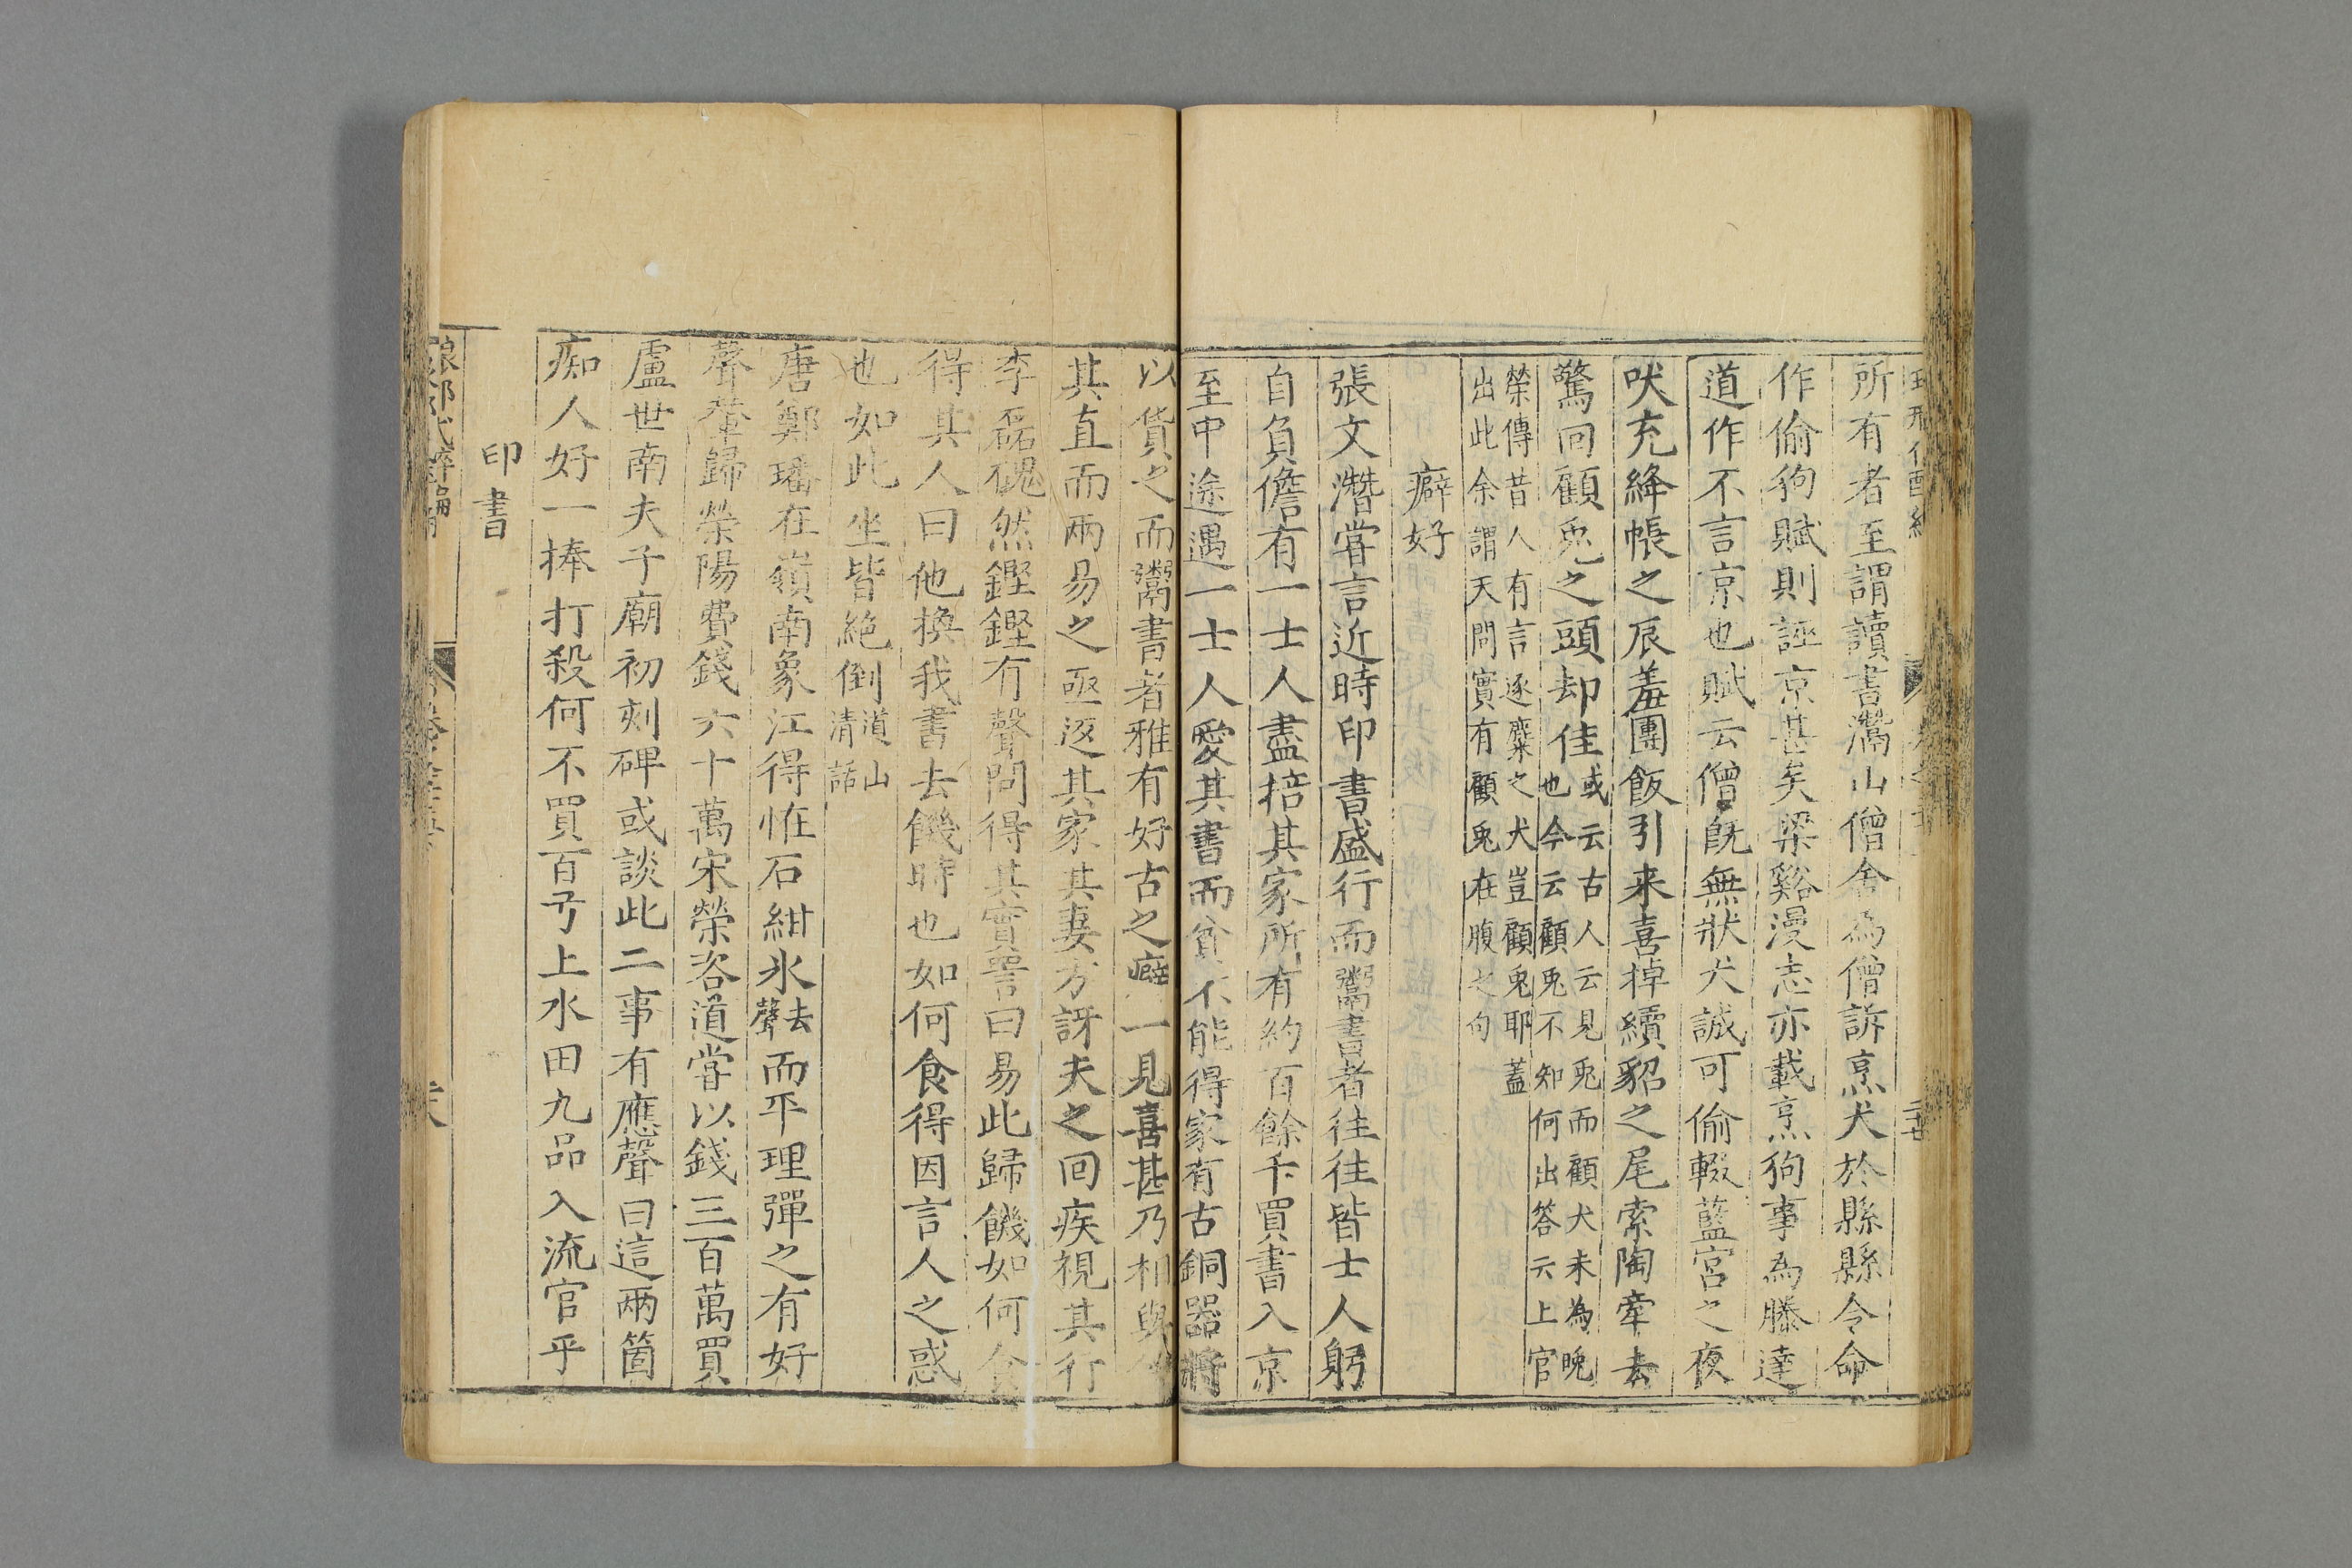 所有者至謂讀書灊山僧舍為僧訴烹犬於縣縣令命
作偷狗賦則誣京甚矣梁谿漫志亦載烹狗事為滕達
道作不言京也賦云僧既無狀犬誠可偷輟藍宮之夜
吠充絳帳之辰羞團飯引来喜掉續貂之尾索陶牽去
驚回顧兎之頭却佳或云古人云見兎而顧犬未為晚
也今云顧兎不知何出答云上官
榮傳昔人有言逐麋之犬豈顧兎耶蓋
出此余謂天問實有顧兎在腹之句
癖好
張文潛嘗言近時印書盛行而鬻書者往往皆士人躬
自負儋有一士人盡掊其家所有約百餘千買書入京
至中途遇一士人愛其書而貧不能得家有古銅器將
以貨之而鬻書者雅有好古之癖一見喜甚乃相與
其直而兩易之亟返其家其妻方訝夫之回疾視其行
李磊磈然鏗鏗有聲問得其實詈曰易此歸饑如何食
得其人曰他換我書去饑時也如何食得因言人之惑
也如此坐皆絶倒道山
清話
唐鄭璠在嶺南象江得恠石紺氷去
聲而平理彈之有好
聲輦歸榮陽費錢六十萬宋榮咨道嘗以錢三百萬買
盧世南夫子廟初刻碑或談此二事有應聲曰這兩箇
痴人好一捧打殺何不買百亐上水田九品入流官乎
印書
琅邪代醉編